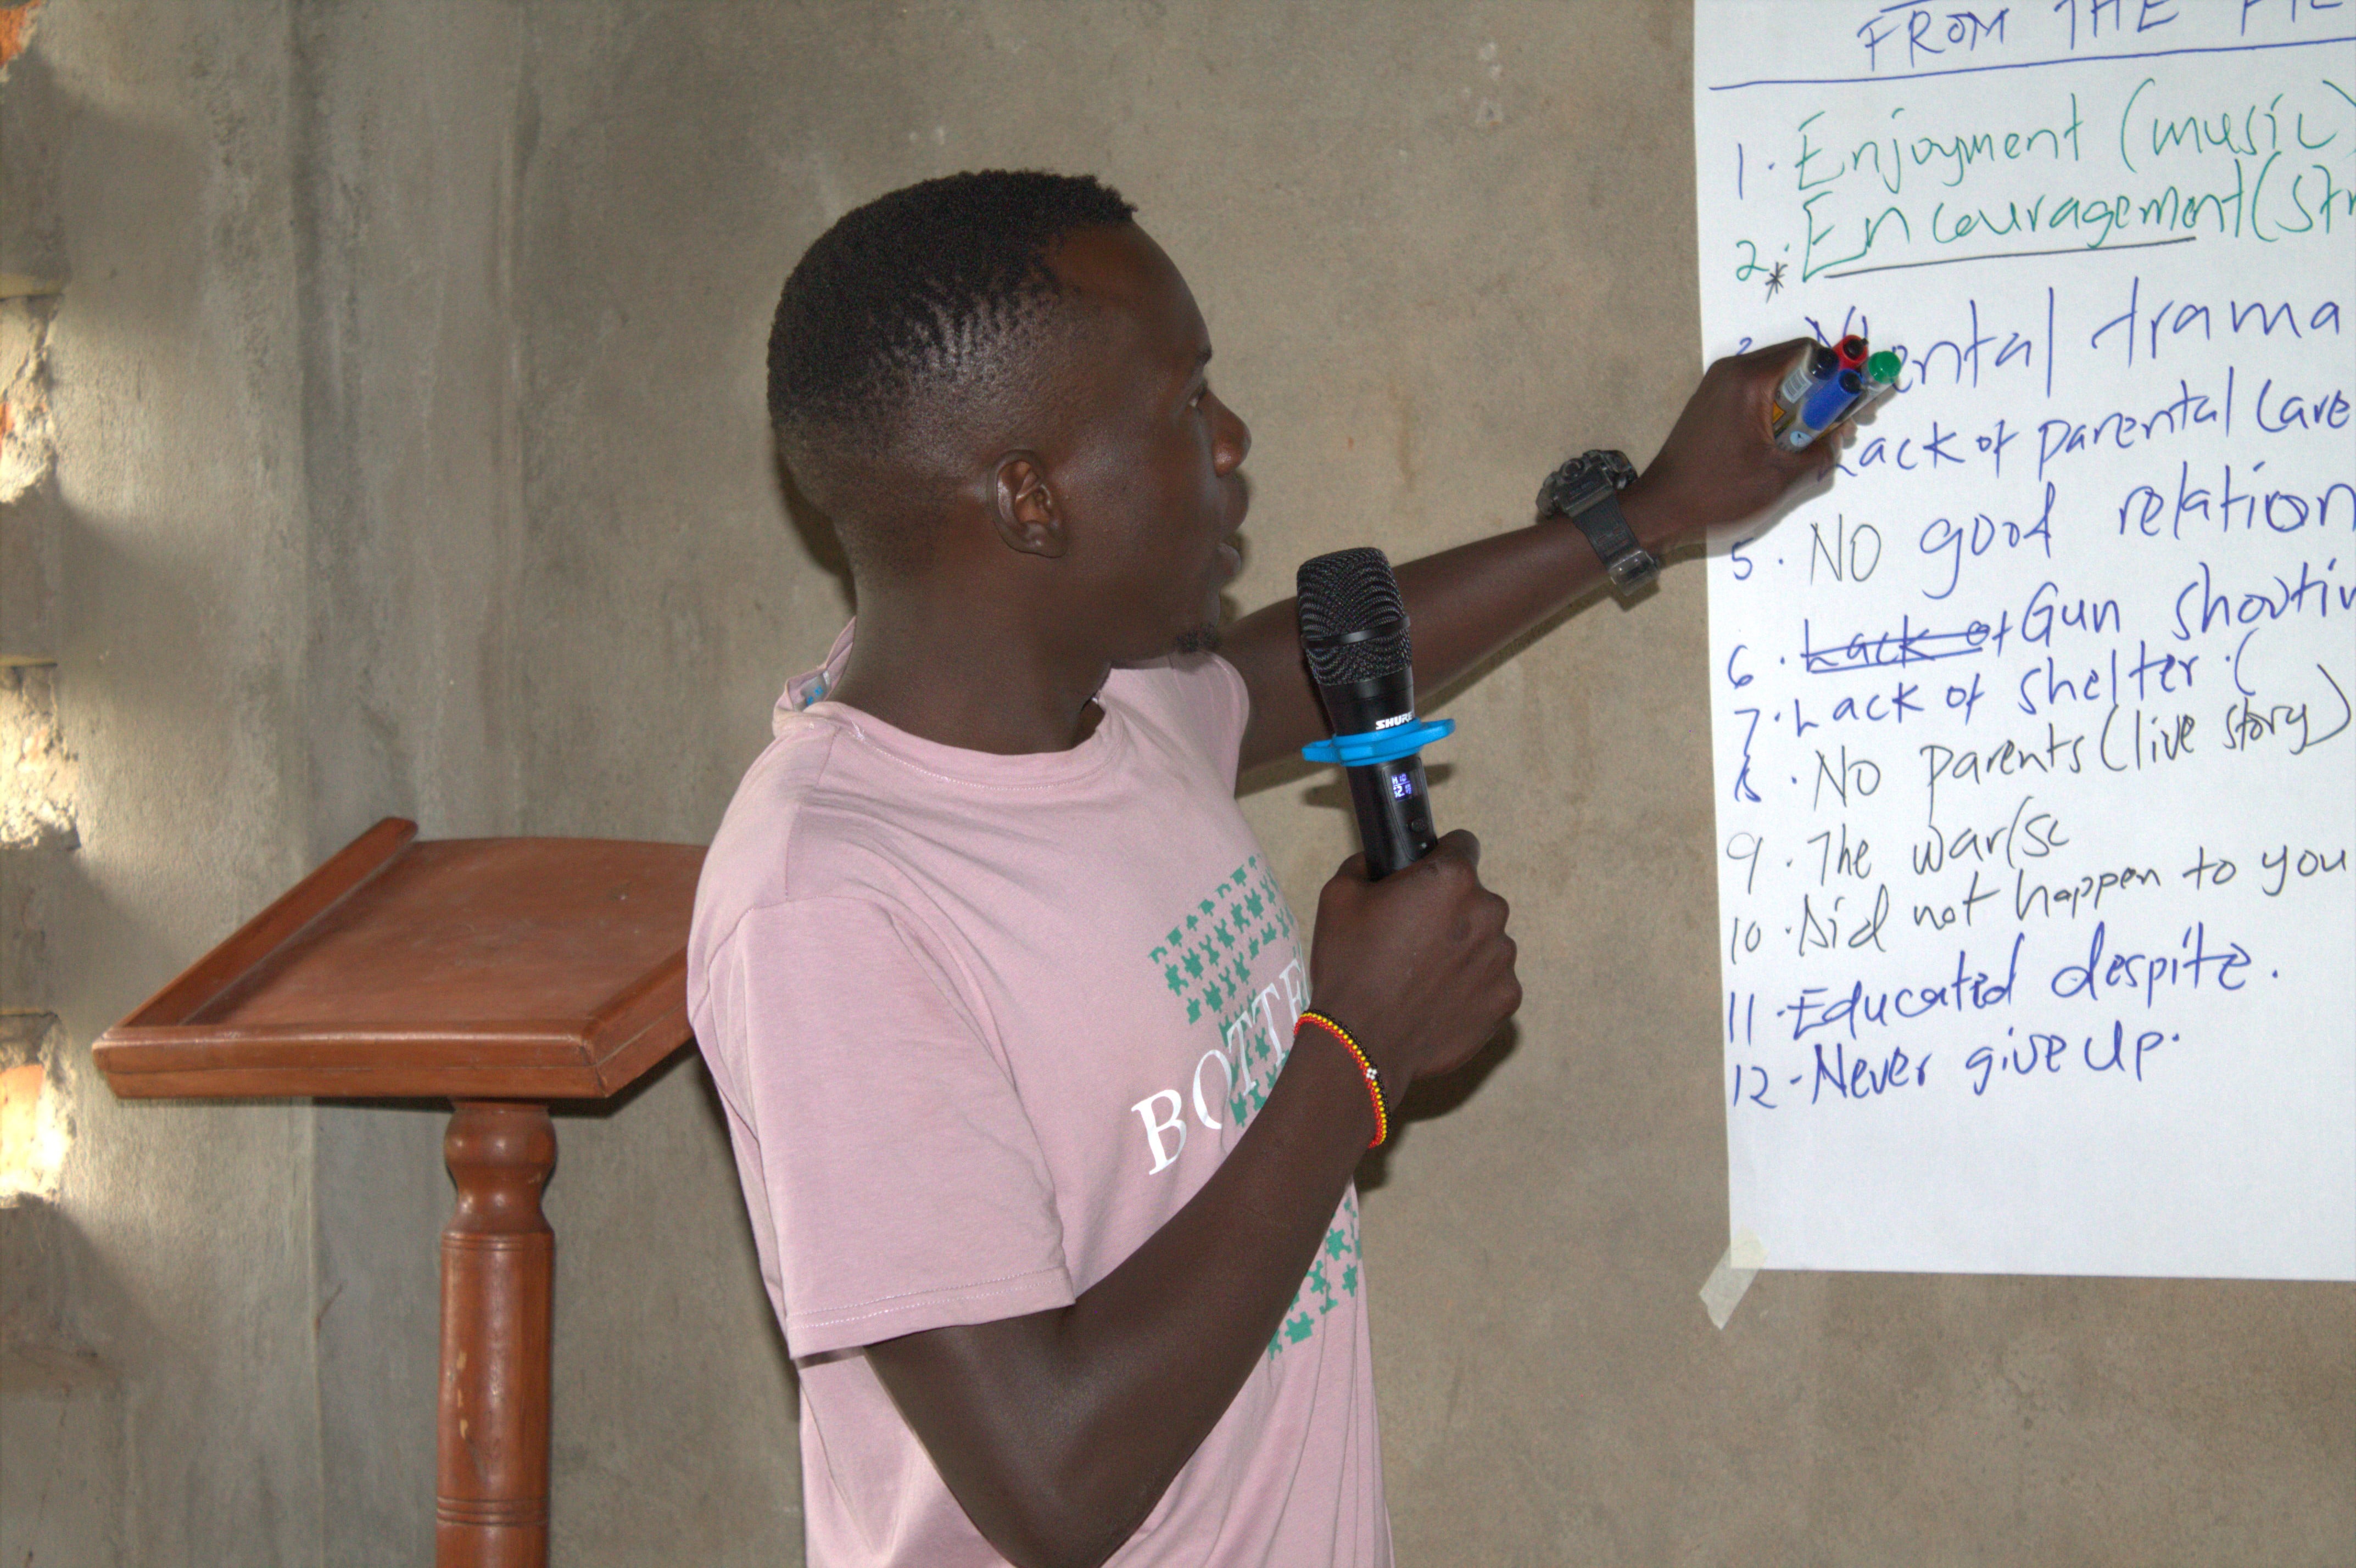 FROM THE
1. Enjoyment (music)
2. Encouragement (
* 
Mental trama
Lack of parental Care
5. NO good relation
6. Lack of Gun shootin
7. Lack of shelter. (
8. NO parents (live story)
9. The war/sc
10. Did not happen to you
11. Educated despite.
12 - Never give up.
SHURE
BOTTE